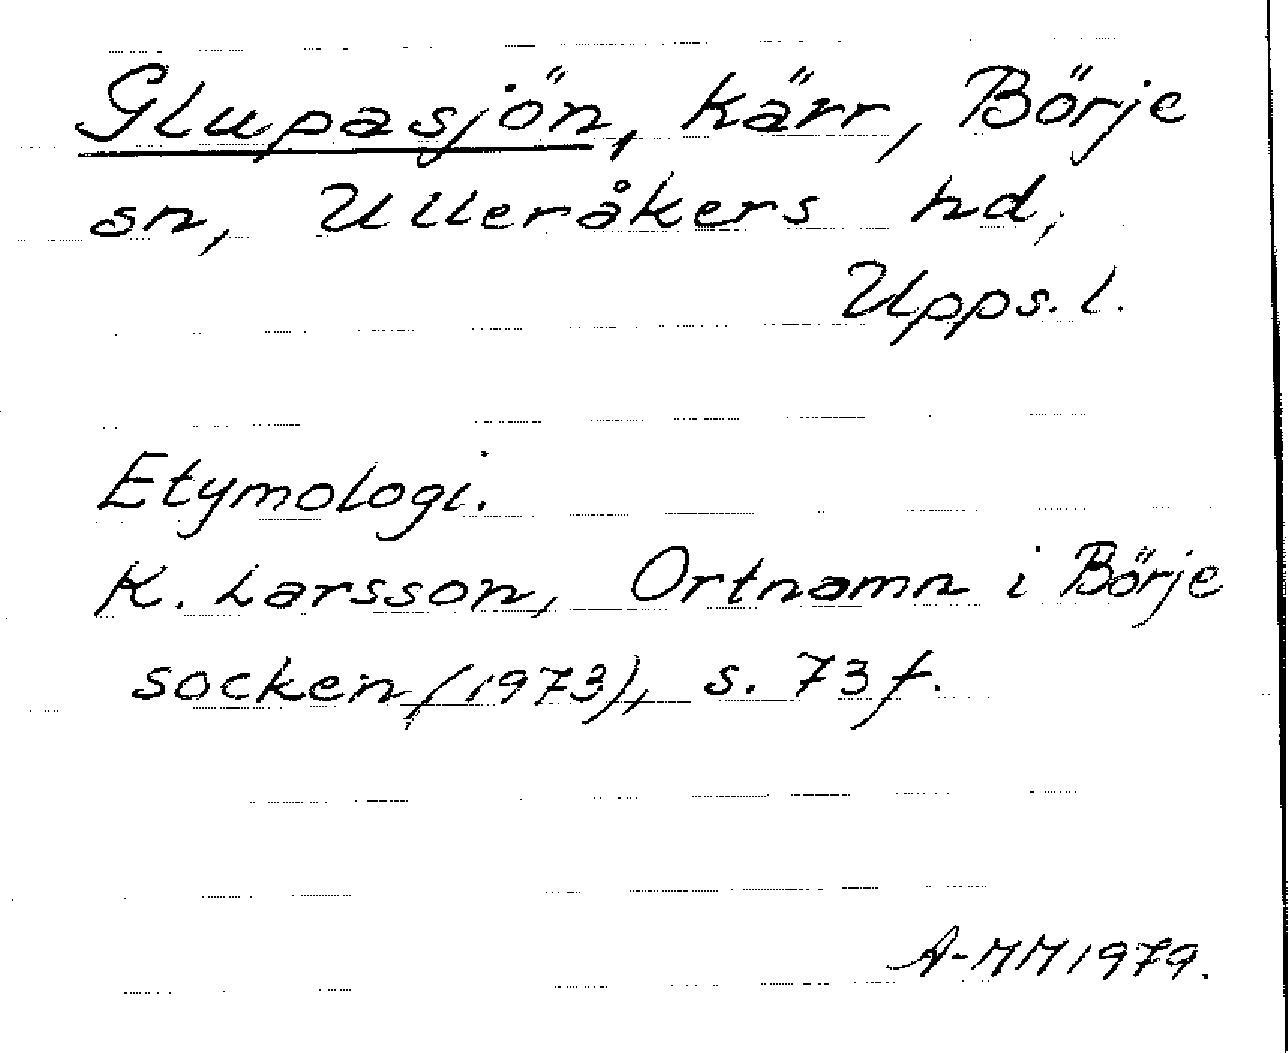 Glupasjön, kärr, Börje
sn, Ulleråkers hd,
Upps. l.
Etymologi.
K. Larsson, Ortnamn i Börje
socken (1973), s. 73 f.
A-MM 1979.